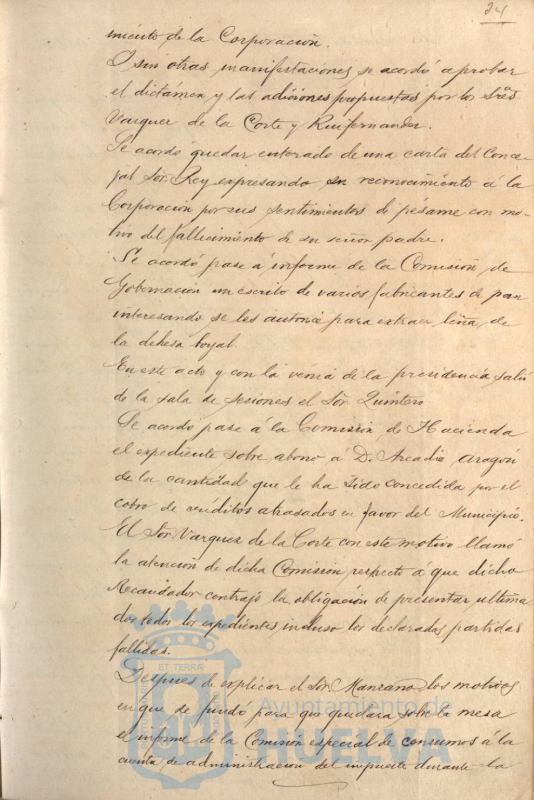 24
miento de la Corporación.
I sin otras manifestaciones se acordó aprobar
el dictamen y las adiciones propuestas por los Sres
Vazquez de la Corte y Ruifernandez.
Se acordó quedar enterado de una carta del Conce-
jal Sor. Rey expresando su reconocimiento á la
Corporación por sus sentimientos de pésame con mo-
tivo del fallecimiento de su señor padre.
Se acordó pase á informe de la Comisión de
Gobernación un escrito de varios fabricantes de pan
interesando se les autorice para extraer leña de
la dehesa boyal.
En este acto y con la venia de la presidencia salió
de la sala de sesiones el Sor. Quintero
Se acordó pase á la Comisión de Hacienda
el expediente sobre abono á D. Arcadio Aragón
de la cantidad que le ha sido concedida por el
cobro de créditos atrasados en favor del Municipio.
El Sor. Vazquez de la Corte con este motivo llamó
la atención de dicha Comisión respecto á que dicho
Recaudador contrajo la obligación de presentar ultima
dos todos los expedientes incluso los declarados partidas
fallidas.
Despues de explicar el Sor. Manzano los motivos
en que se fundó para que quedara sobre la mesa
el informe de la Comisión especial de consumos á la
cuenta de administracion del impuesto durante la
ET TERRÆ
Ayuntamiento de
HUELVA